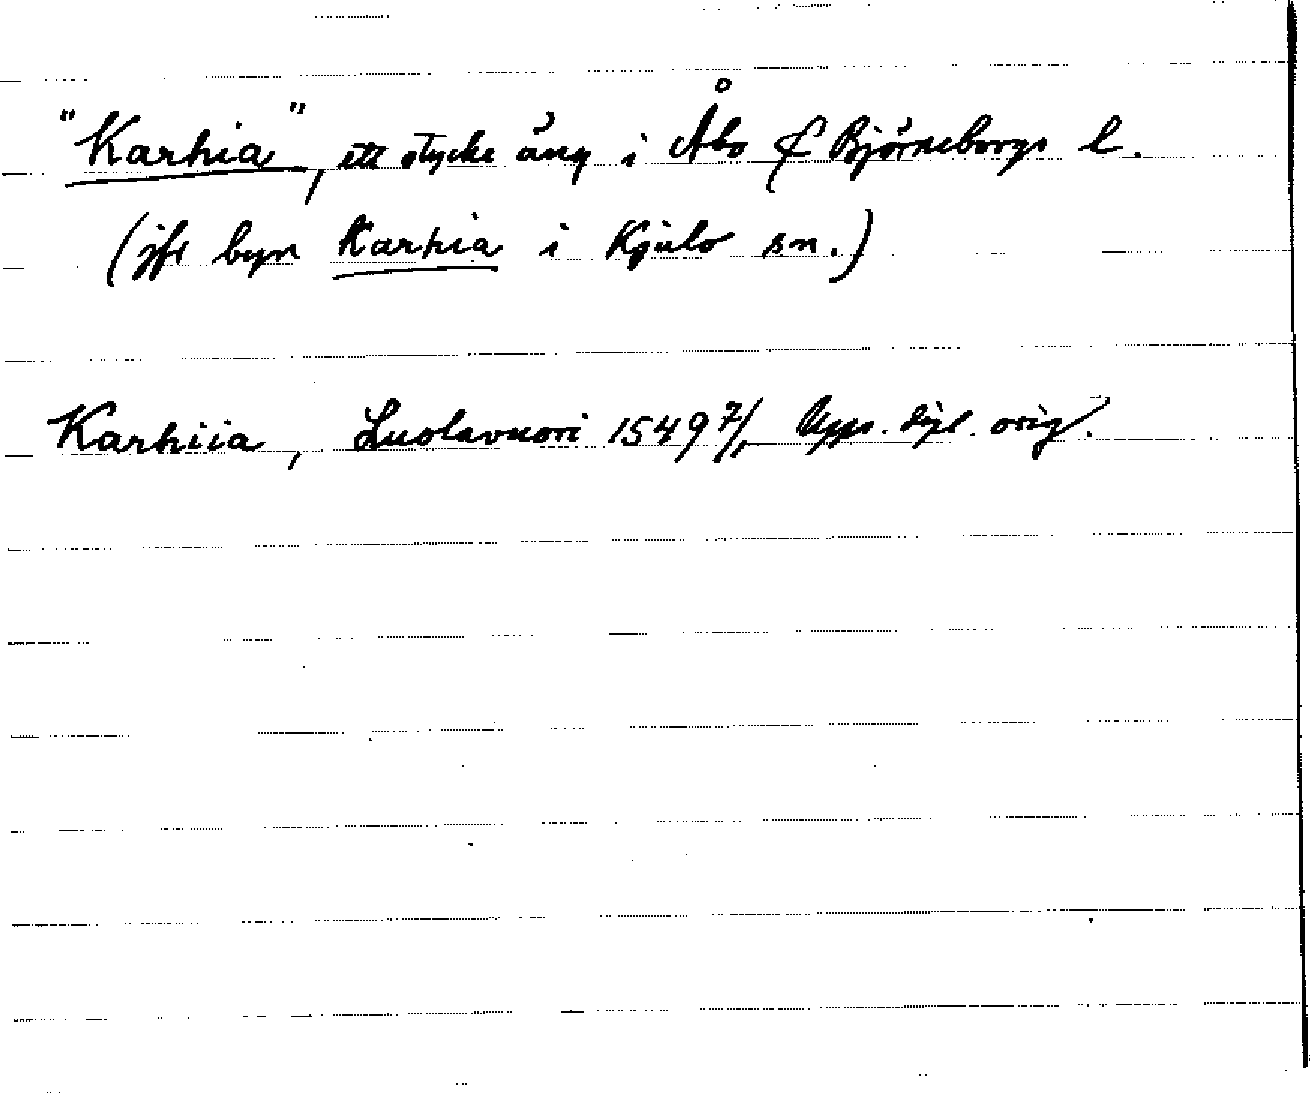 "Karhia", ett stycke äng i Åbo & Björneborgs l.
(jfr byn Karhia i Kjulo sn.)
Karhiia, Luolavuori 1549 7/1 Upps. dipl. orig.